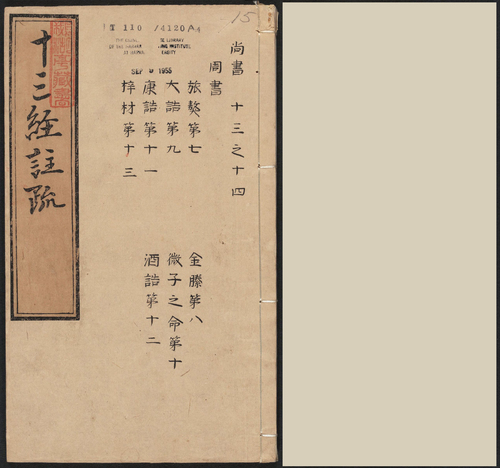 15
110 /4120
SEP 9 1955
尚書 十三之十四
周書
旅獒第七 金縢第八
大誥第九 微子之命第十
康誥第十一 酒誥第十二
梓材第十三
十三經註疏